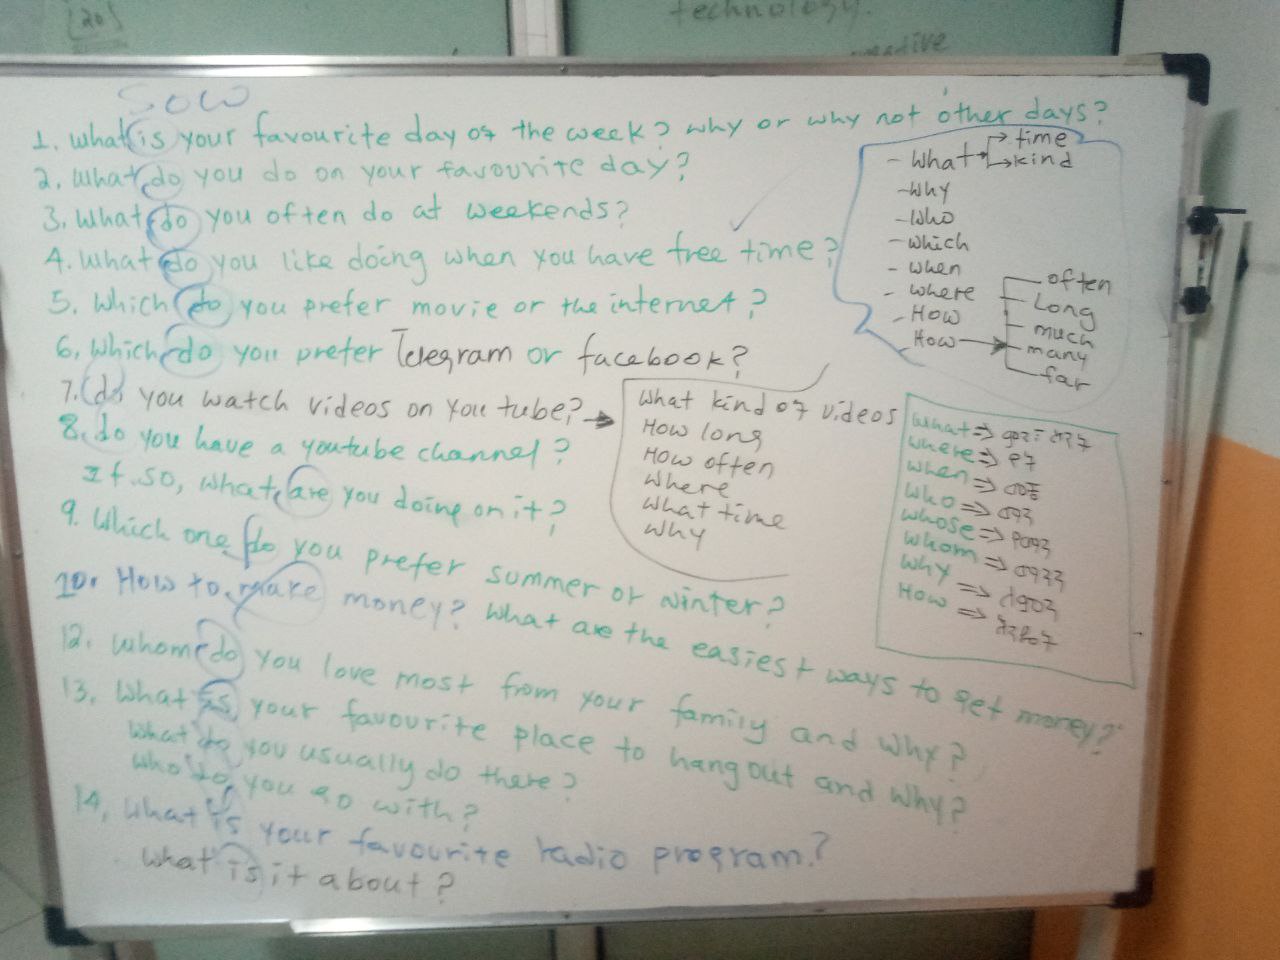 [20]
technology.
Sow
1. What is your favourite day of the week? why or why not other days?
2. What do you do on your favourite day?
3. What do you often do at weekends?
4. What do you like doing when you have free time?
5. Which do you prefer movie or the internet?
6. Which do you prefer Telegram or facebook?
7. do you watch videos on you tube?
8. do you have a youtube channel?
If so, what are you doing on it?
9. Which one do you prefer summer or winter?
10. How to make money? What are the easiest ways to get money?
12. Whome do you love most from your family and why?
13. What is your favourite place to hang out and why?
What do you usually do there?
who do you go with?
14. What is your favourite radio program?
What is it about?
- What
time
kind
- Why
- Who
- which
- when
- where
- How
- How
often
Long
much
many
far
What kind of videos
How long
How often
Where
What time
Why
What =>
where =>
when =>
who =>
whose =>
whom =>
Why =>
How =>